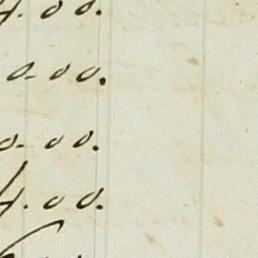 4. 00.
0- 00.
0- 00.
4. 00.